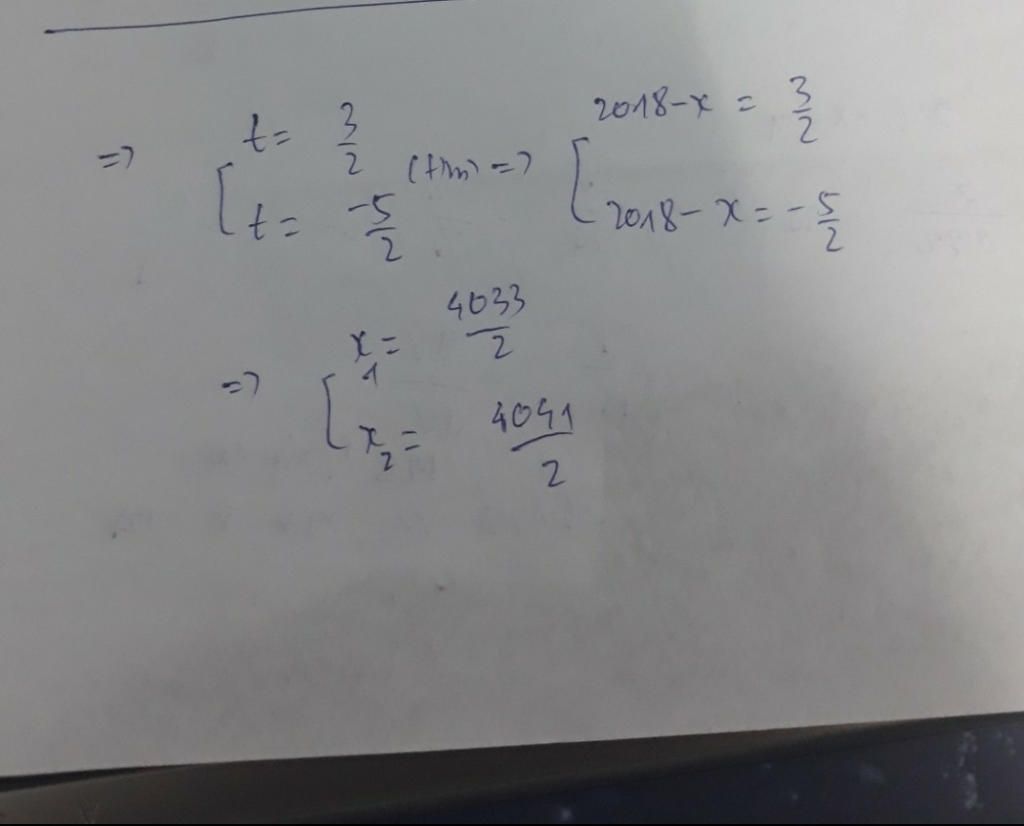 => [ t = 3/2 (t/m) => [ 2018 - x = 3/2
t = -5/2 2018 - x = -5/2
=> [ x1 = 4033/2
x2 = 4041/2